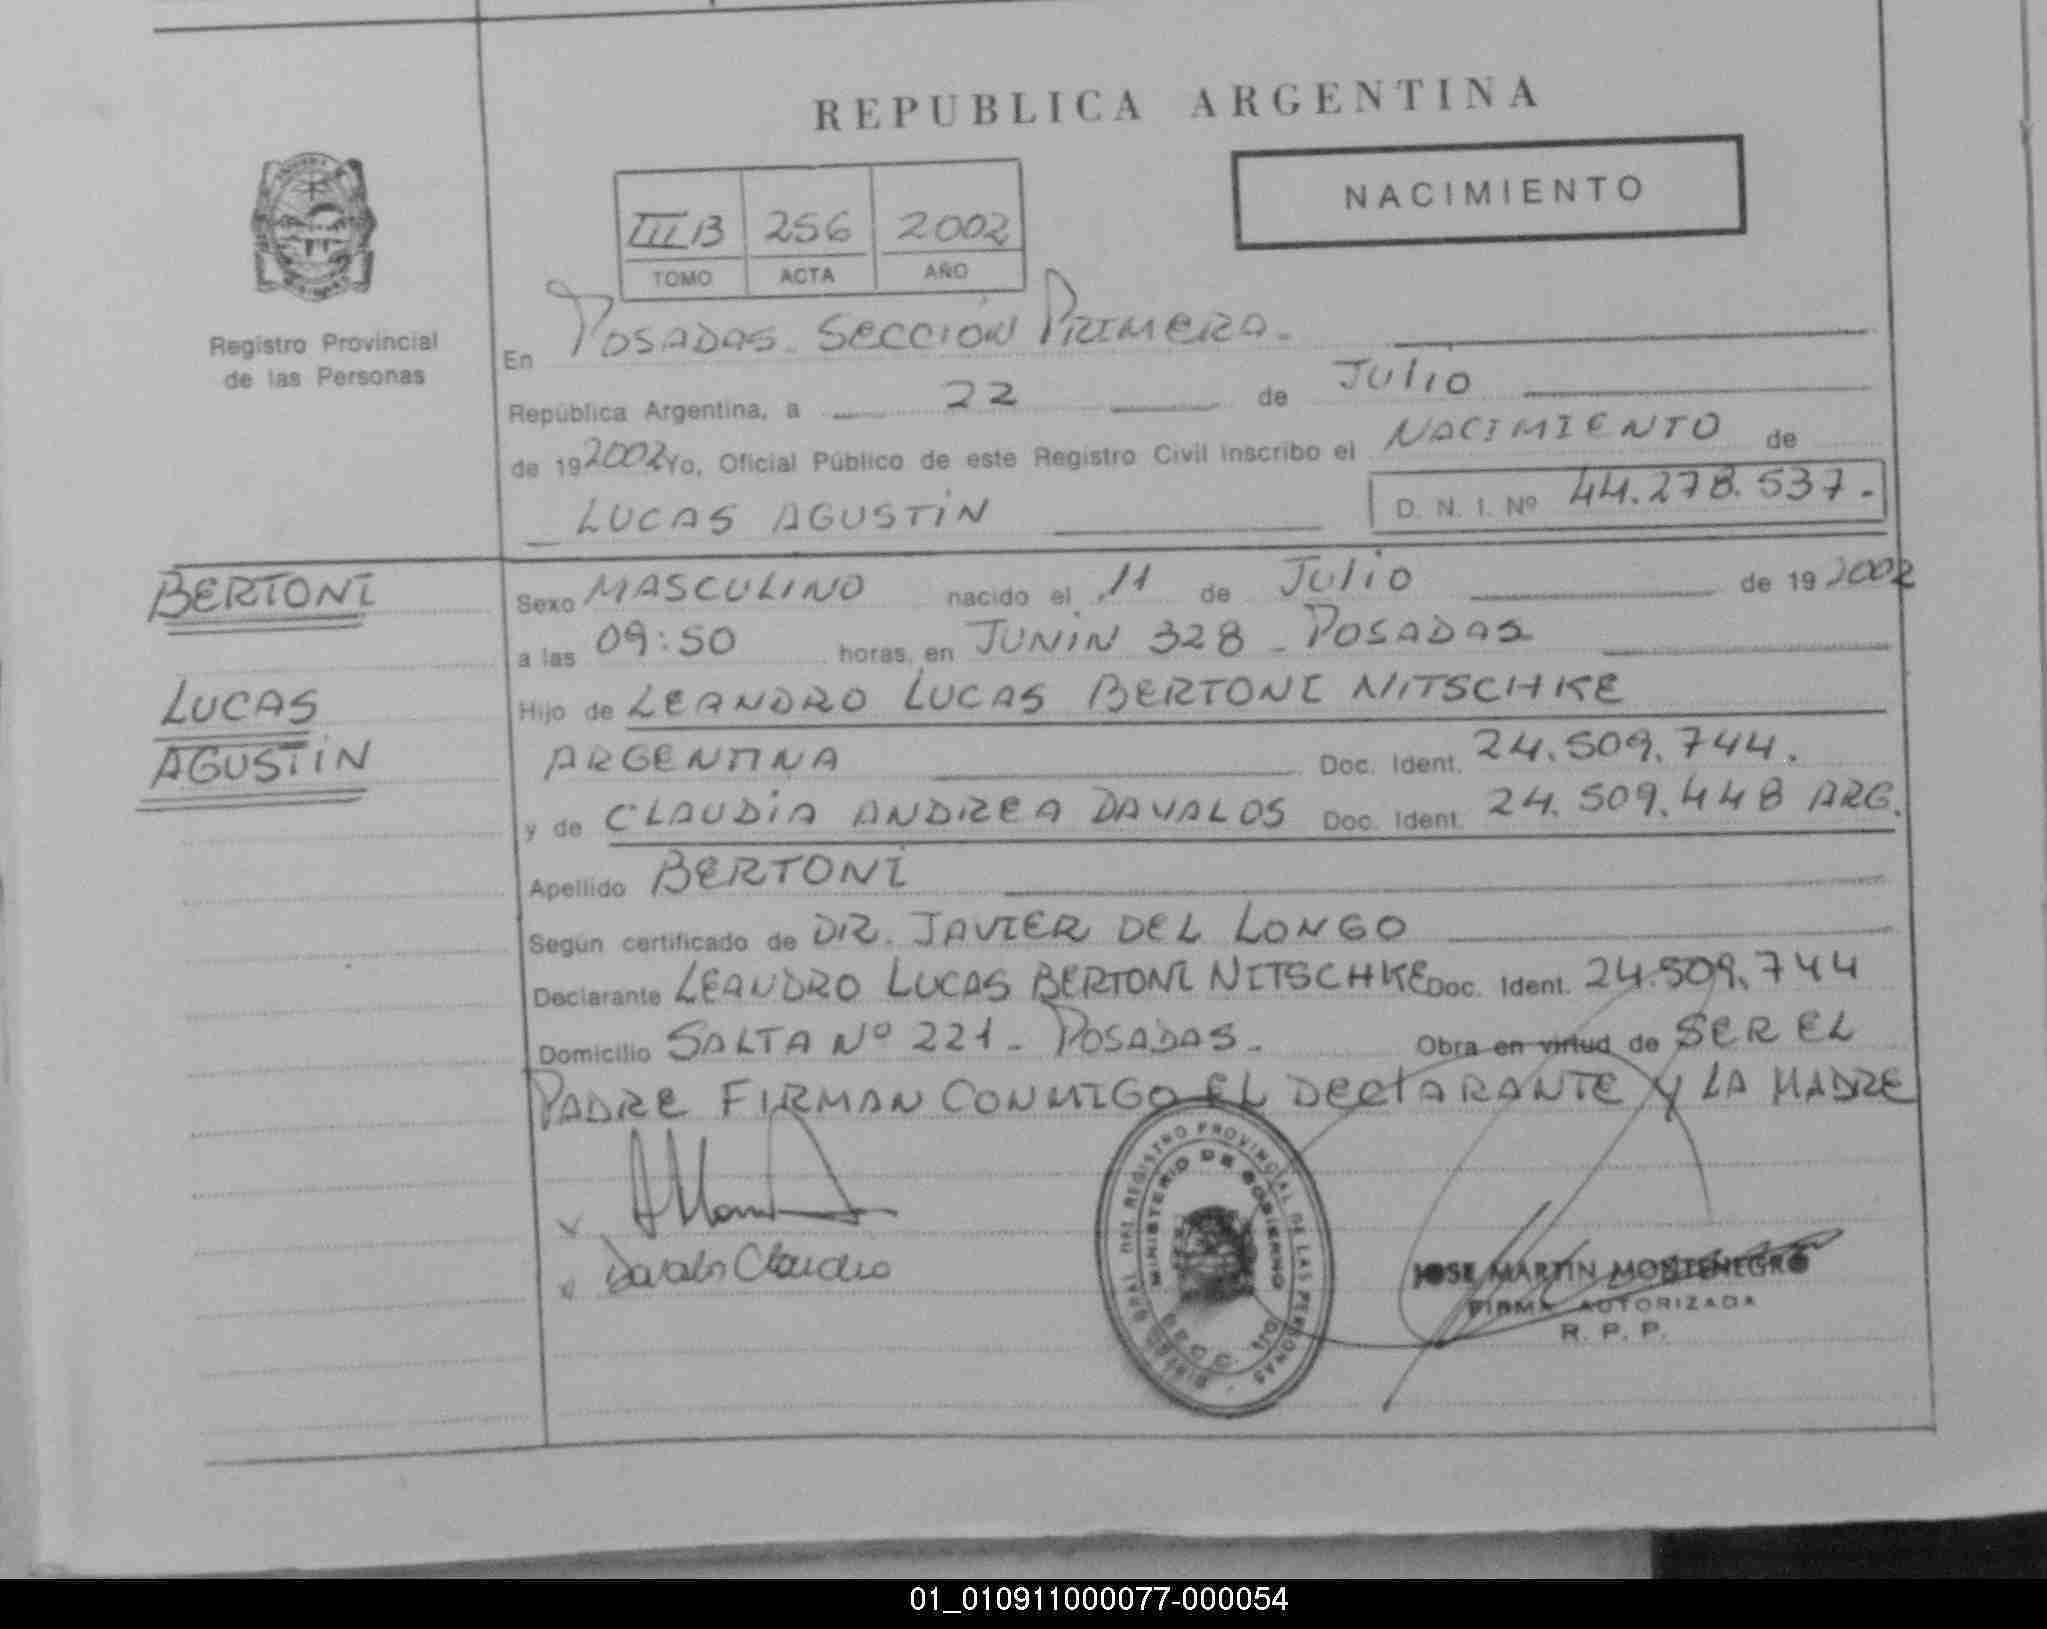 REPUBLICA ARGENTINA
NACIMIENTO
III B 256 2002
TOMO ACTA AÑO
Registro Provincial
de las Personas
En POSADAS - SECCIÓN PRIMERA.
República Argentina, a 22 de Julio
de 19 2002 Yo, Oficial Público de este Registro Civil inscribo el NACIMIENTO de
LUCAS AGUSTÍN D. N. I. Nº 44.278.537.-
BERTONI
LUCAS
AGUSTÍN
Sexo MASCULINO nacido el 11 de Julio de 19 2002
a las 09:50 horas, en JUNIN 328 - POSADAS
Hijo de LEANDRO LUCAS BERTONI NITSCHKE
ARGENTINA Doc. Ident. 24.509.744.
y de CLAUDIA ANDREA DAVALOS Doc. Ident. 24.509.448 ARG.
Apellido BERTONI
Según certificado de DR. JAVIER DEL LONGO
Declarante LEANDRO LUCAS BERTONI NITSCHKE Doc. Ident. 24.509.744
Domicilio SALTA Nº 221 - POSADAS - Obra en virtud de SER EL
PADRE FIRMAN CONMIGO EL DECLARANTE Y LA MADRE
Davalos Claudia
REGISTRO PROVINCIAL DE LAS PERSONAS
MINISTERIO DE GOBIERNO
JOSE MARTIN MONTENEGRO
FIRMA AUTORIZADA
R. P. P.
01_010911000077-000054